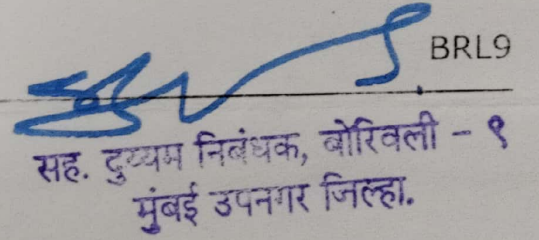 BRL9
सह. दुय्यम निबंधक, बोरिवली - ९
मुंबई उपनगर जिल्हा.